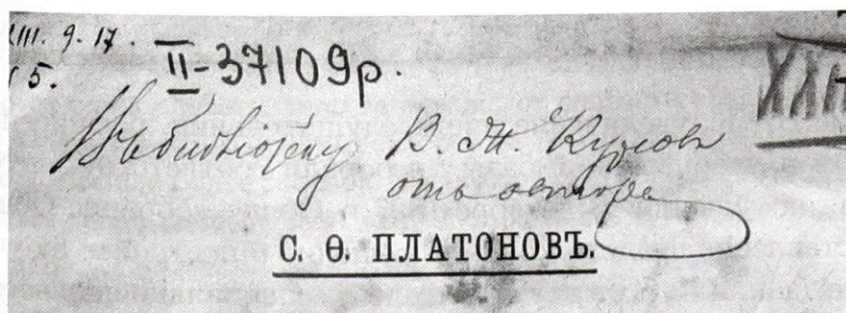 XIII. 9. 17.
II-37109р.
5.
XXII
Въ библіотеку В. Ж. Курсовъ
отъ автора
С. Ѳ. ПЛАТОНОВЪ.